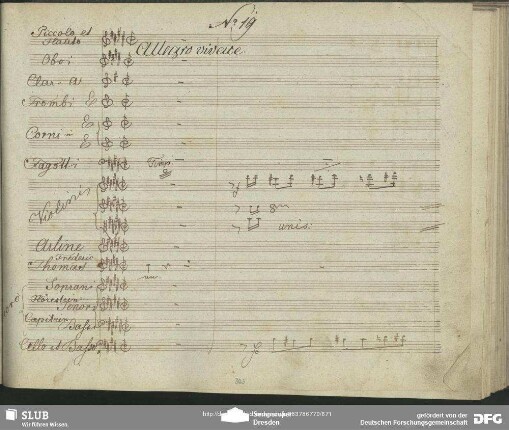 No 19
Piccolo et
Flauto
Allegro vivace.
Oboi
Clar: A
Trombi E
E
Corni
E
Fagotti
Violini
unis:
Arline
Thomas
Soprani
Tenori
Bassi
Cello et Basso
SLUB
Wir führen Wissen.
Dresden
gefördert von der
Deutschen Forschungsgemeinschaft
DFG